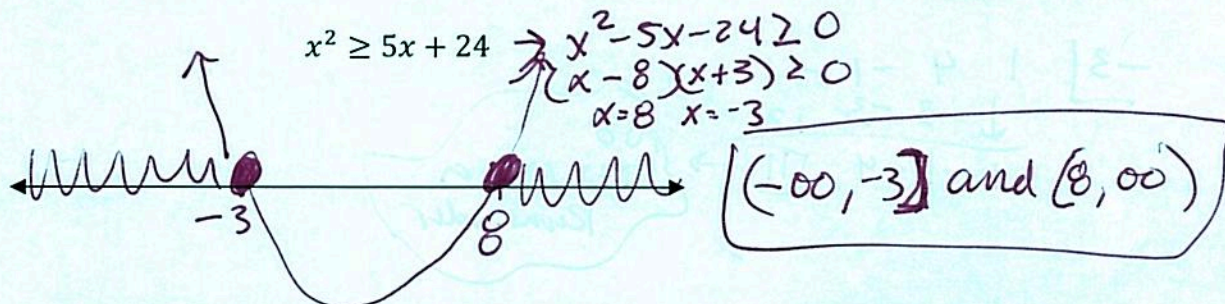 x² ≥ 5x + 24 → x² - 5x - 24 ≥ 0
(x - 8)(x + 3) ≥ 0
x = 8 x = -3
-3
8
(-∞, -3] and [8, ∞)